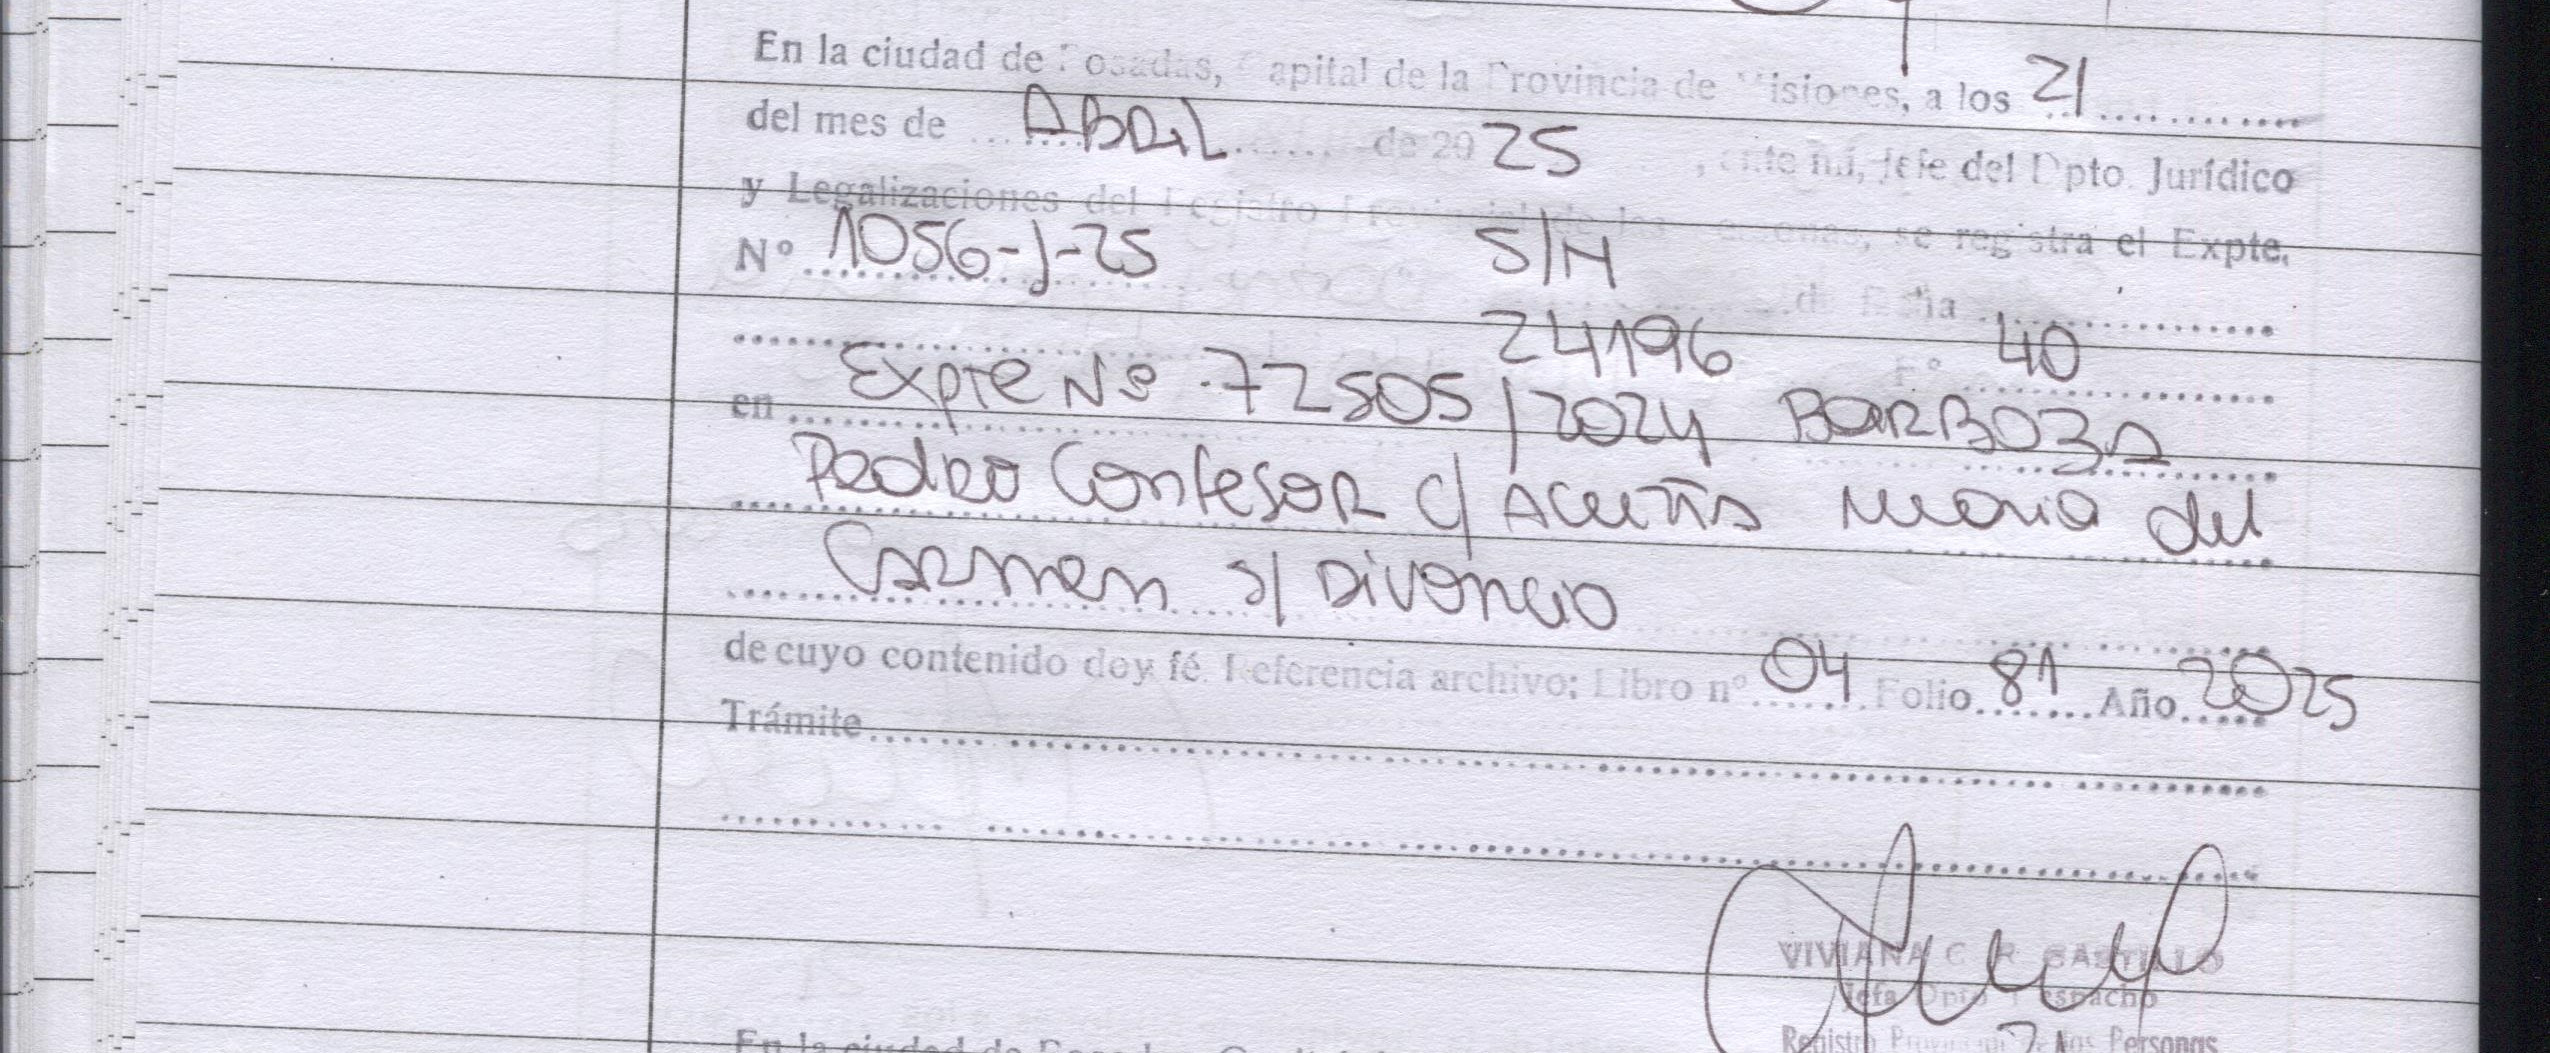 En la ciudad de Posadas, Capital de la Provincia de Misiones, a los 21
del mes de ABRIL de 20 25, ante mí, Jefe del Dpto. Jurídico
y Legalizaciones del Registro Provincial de las Personas, se registra el Expte.
Nº 1056-J-25 S/H
de Fecha
24196 Fº 40
en Expte Nº 72505/2024 BARBOZA
Pedro Confesor c/ Acuña Maria del
Carmen s/ Divorcio
de cuyo contenido doy fé. Referencia archivo: Libro nº 04 Folio 81 Año 2025
Trámite
VIVIANA C. R. CASTILLO
Jefa Dpto. Despacho
Registro Provincial de las Personas
21
En la ciudad de Posadas,